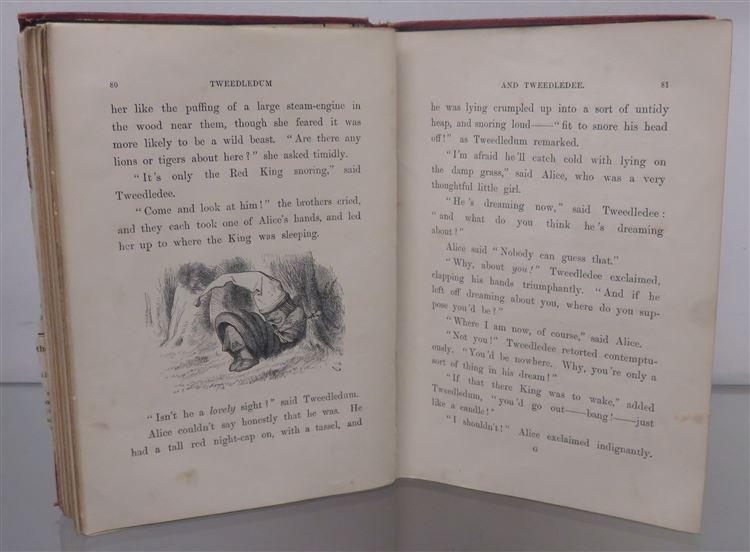 80
TWEEDLEDUM
her like the puffing of a large steam-engine in
the wood near them, though she feared it was
more likely to be a wild beast. "Are there any
lions or tigers about here?" she asked timidly.
"It's only the Red King snoring," said
Tweedledee.
"Come and look at him!" the brothers cried,
and they each took one of Alice's hands, and led
her up to where the King was sleeping.
"Isn't he a lovely sight?" said Tweedledum.
Alice couldn't say honestly that he was. He
had a tall red night-cap on, with a tassel, and
AND TWEEDLEDEE.
81
he was lying crumpled up into a sort of untidy
heap, and snoring loud——"fit to snore his head
off!" as Tweedledum remarked.
"I'm afraid he'll catch cold with lying on
the damp grass," said Alice, who was a very
thoughtful little girl.
"He's dreaming now," said Tweedledee:
"and what do you think he's dreaming
about?"
Alice said "Nobody can guess that."
"Why, about you!" Tweedledee exclaimed,
clapping his hands triumphantly. "And if he
left off dreaming about you, where do you sup-
pose you'd be?"
"Where I am now, of course," said Alice.
"Not you!" Tweedledee retorted contemptu-
ously. "You'd be nowhere. Why, you're only a
sort of thing in his dream!"
"If that there King was to wake," added
Tweedledum, "you'd go out——bang!——just
like a candle!"
"I shouldn't!" Alice exclaimed indignantly.
G